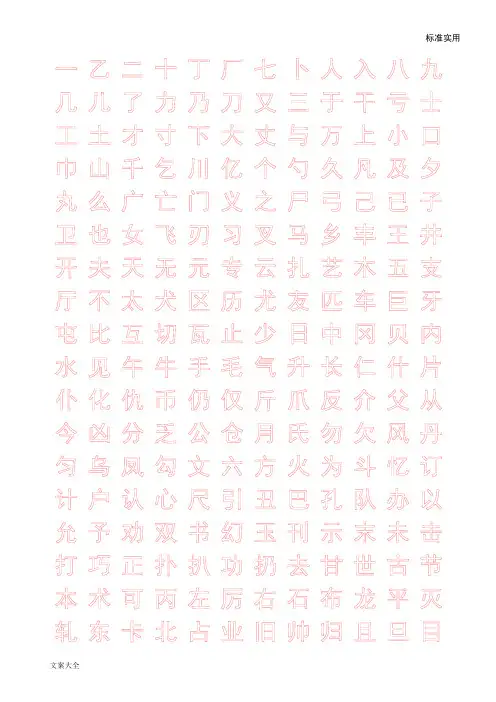 标准实用
一乙二十丁厂七卜人入八九
几儿了力乃刀又三于干亏士
工土才寸下大丈与万上小口
巾山千乞川亿个勺久凡及夕
丸么广亡门义之尸弓己已子
卫也女飞刃习叉马乡丰王井
开夫天无元专云扎艺木五支
厅不太犬区历尤友匹车巨牙
屯比互切瓦止少日中冈贝内
水见午牛手毛气升长仁什片
仆化仇币仍仅斤爪反介父从
今凶分乏公仓月氏勿欠风丹
匀乌凤勾文六方火为斗忆订
计户认心尺引丑巴孔队办以
允予劝双书幻玉刊示末未击
打巧正扑扒功扔去甘世古节
本术可丙左厉右石布龙平灭
轧东卡北占业旧帅归且旦目
文案大全